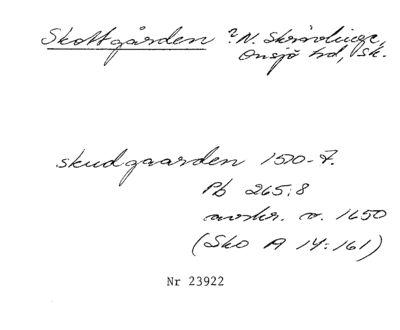 Skottgården ?N. Skrävlinge,
Onsjö hd, Sk.
skudgaarden 1570-7.
Pb 265:8
avskr. o. 1650
(Sko A 14:161)
Nr 23922